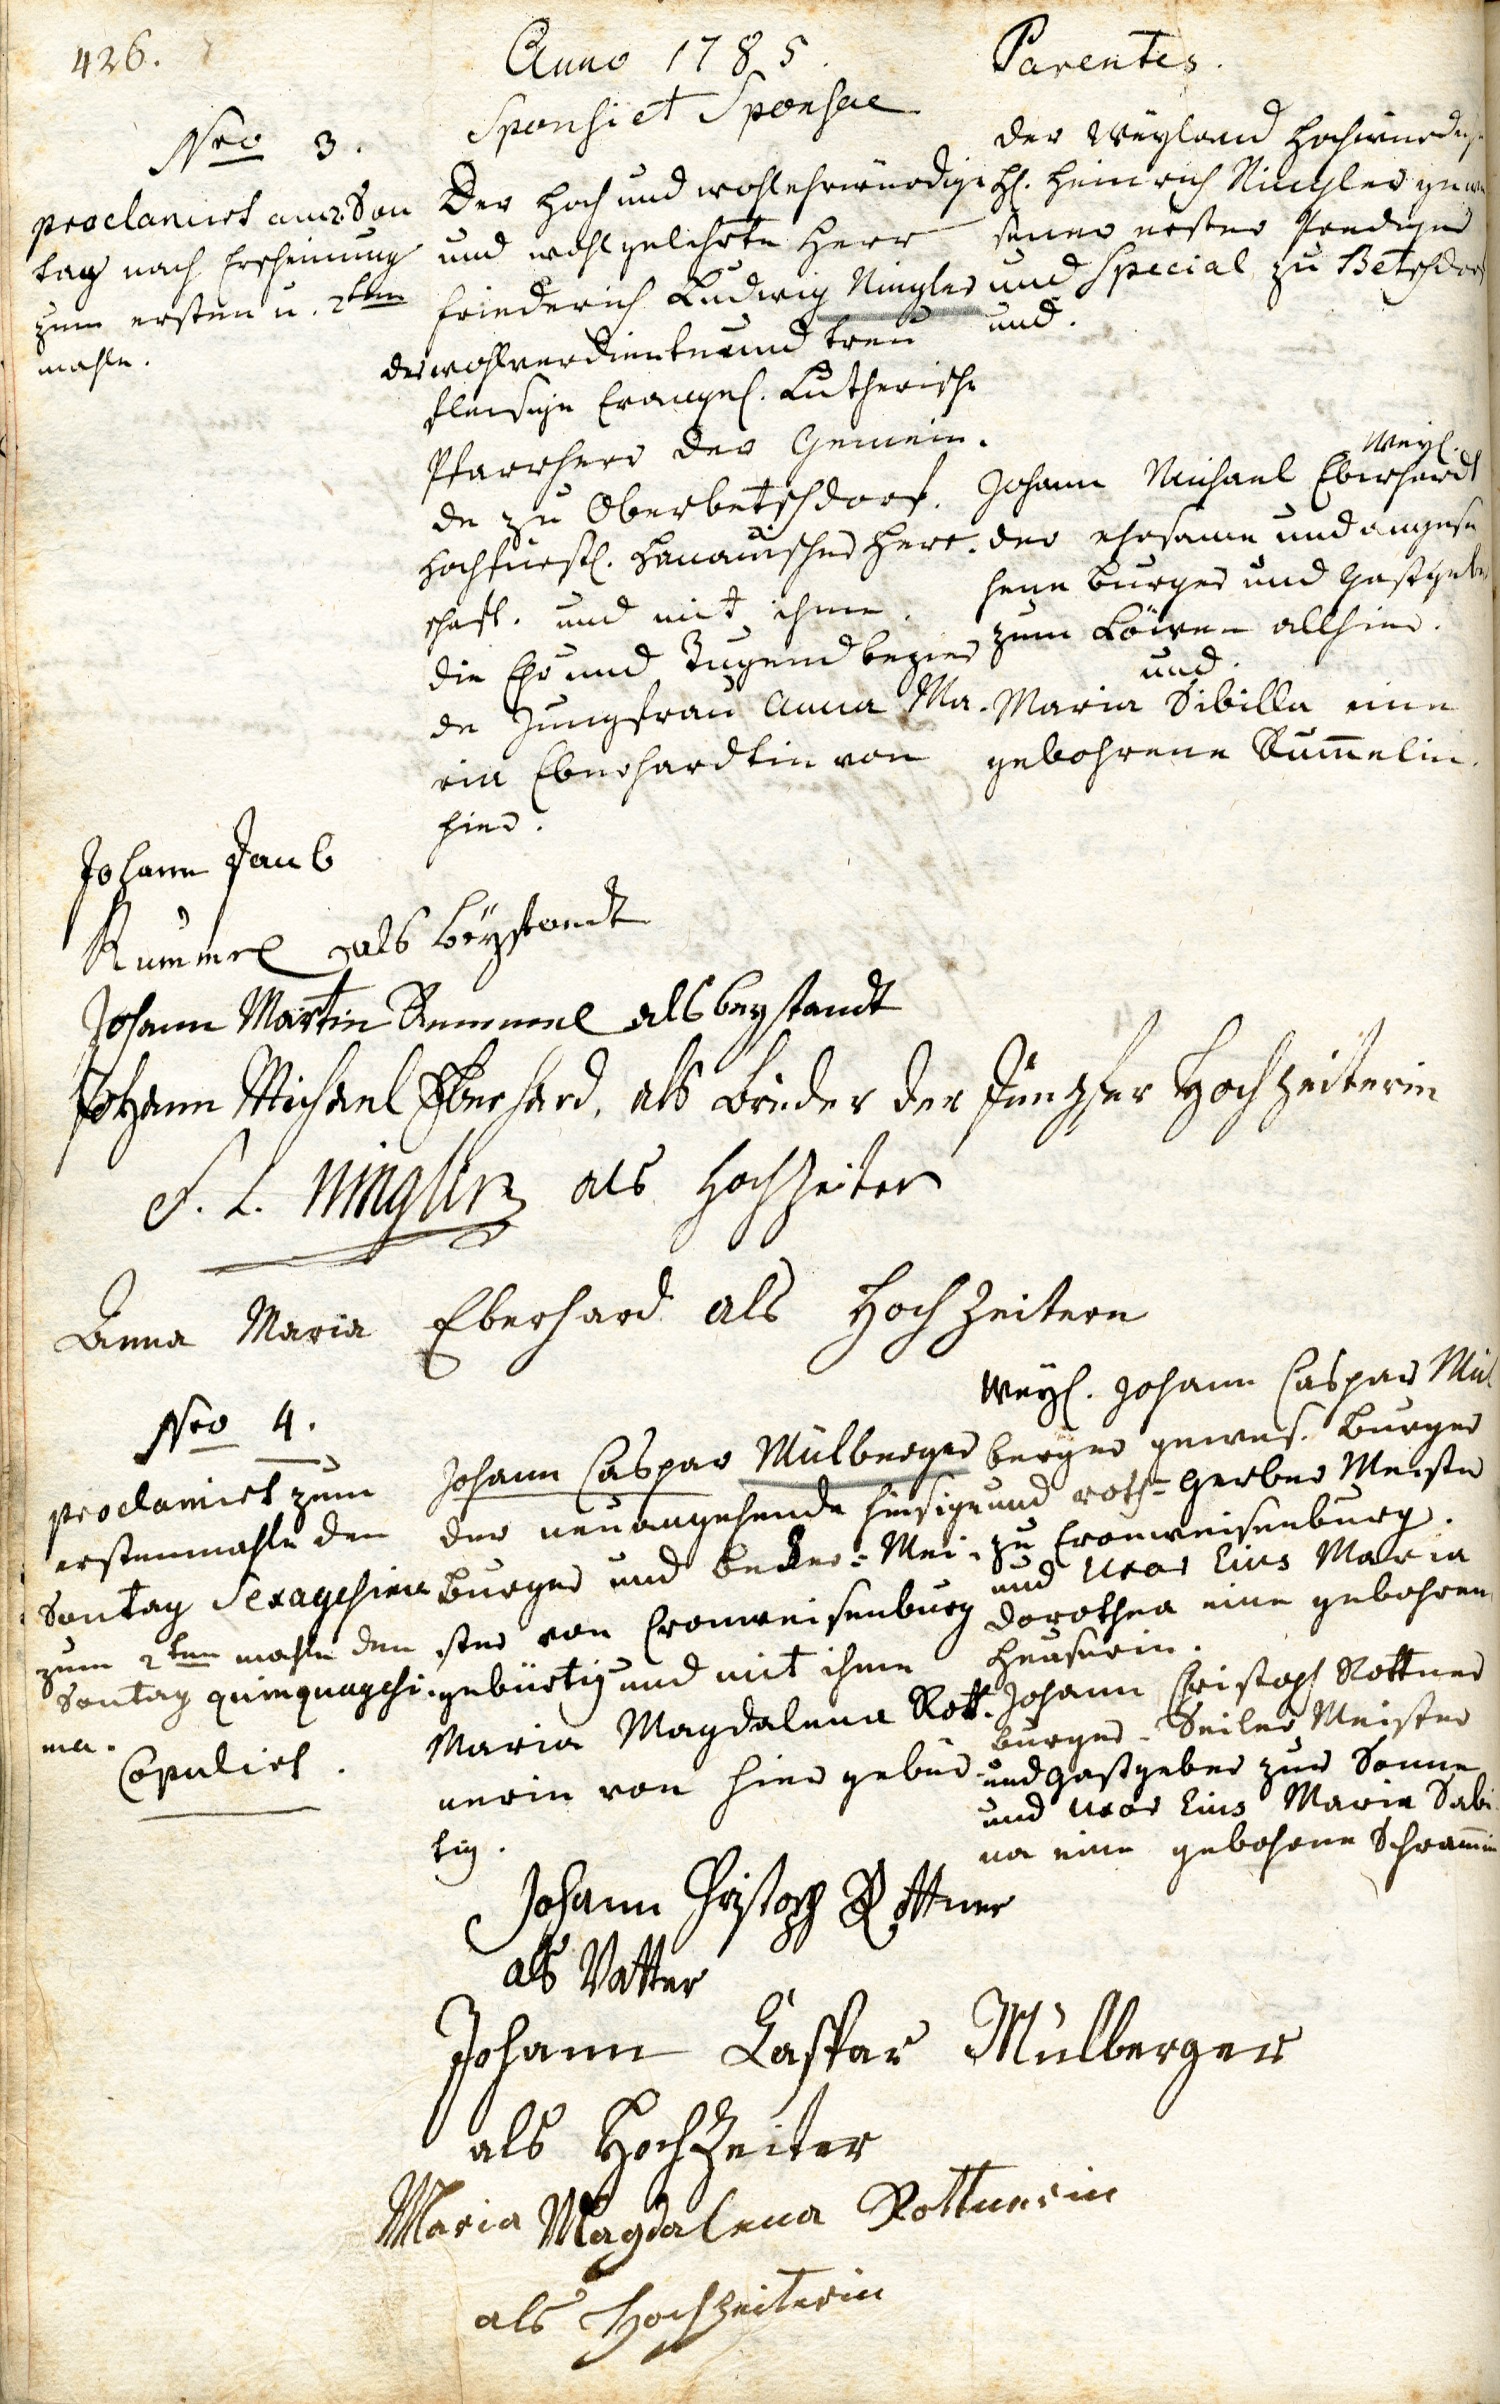 426.
Anno 1785.
Parentes.
Sponsi et Sponsae
Nro 3.
proclamirt am 2 Son
tag nach Erscheinung
zum ersten u. 2ten
mahle.
Der Hoch und wohlehrwürdige
und wohlgelehrte Herr
Friederich Ludwig Ningler
der wohlverdiente und treu
fleisige Evangel. Lutherische
Pfarrherr der Gemein-
de zu Oberbetschdorf.
Hochfürstl. Hanauischer Herr-
schaft. und mit ihme
die Ehr und Tugend bezier
de Jungfrau Anna Ma-
ria Eberhardtin von
hier.
der Weyland Hochwürdige
H. Heinrich Ningler gewe
sener erster Prediger
und Special zu Betschdorf
und.
Weyl.
Johann Michael Eberhardt
der ehrsame und angese
hene Burger und Gastgeber
zum Löwen allhier.
und.
Maria Sibilla eine
gebohrene Rummelin.
Johann Jacob
Rummel als beystandt
Johann Martin Rummel als beystandt
Johann Michael Eberhard, als Bruder der Jungfer Hochzeiterin
F. L. Ningler als Hochzeiter
Anna Maria Eberhard als Hoch Zeitern
Nro 4.
proclamirt zum
erstenmahle den
Sontag Sexagesima
zum 2ten mahle den
Sontag quinquagesi-
ma.
Copulirt.
Johann Caspar Mülberger
der neuangehende hiesige
Burger und Becker-Mei-
ster von Cronweisenburg
gebürtig und mit ihme
Maria Magdalena Rott-
nerin von hier gebür
tig.
Weyl. Johann Caspar Mül
berger gewes. Burger
und roth-Gerber Meister
zu Cronweisenburg.
und Uxor Eius Maria
Dorothea eine gebohren
Heuserin.
Johann Christoph Rottner
Burger-Seiler Meister
und Gastgeber zur Sonne
und Uxor Eius Maria Sabi
na eine gebohrne Schrammin
Johann Christoph Rottner
als Vatter
Johann Caspar Mülberger
als HochZeiter
Maria Magdalena Rottnerin
als Hochzeiterin